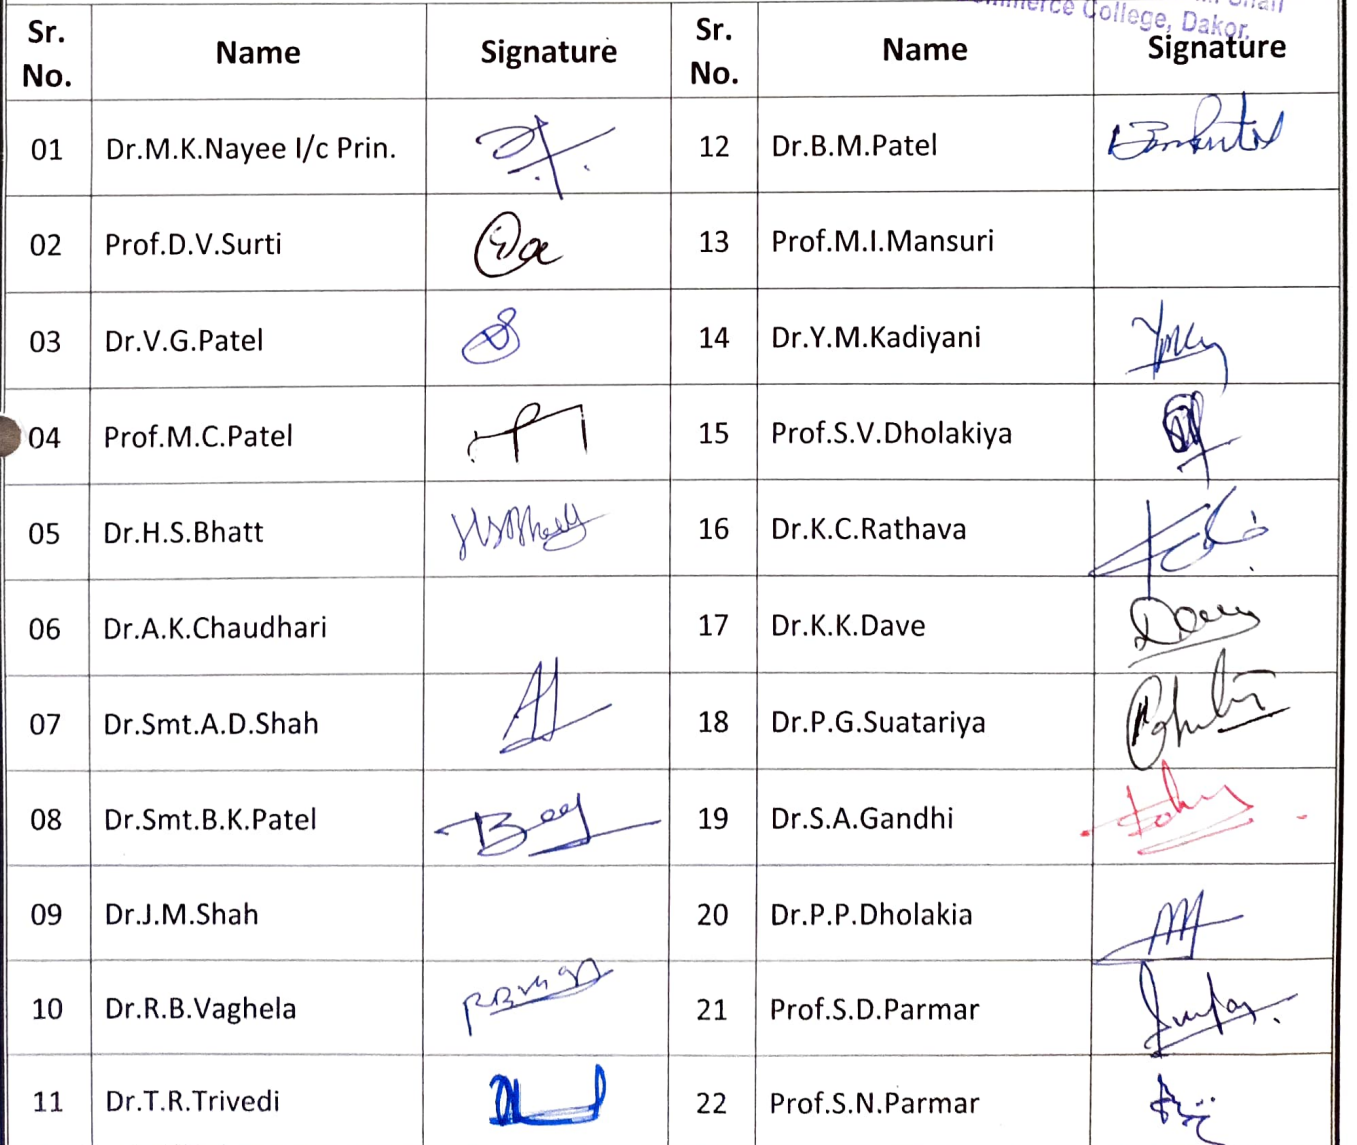 Commerce College, Dakor.
Sr. No. Name Signature Sr. No. Name Signature
01 Dr.M.K.Nayee I/c Prin. 12 Dr.B.M.Patel
02 Prof.D.V.Surti 13 Prof.M.I.Mansuri
03 Dr.V.G.Patel 14 Dr.Y.M.Kadiyani
04 Prof.M.C.Patel 15 Prof.S.V.Dholakiya
05 Dr.H.S.Bhatt 16 Dr.K.C.Rathava
06 Dr.A.K.Chaudhari 17 Dr.K.K.Dave
07 Dr.Smt.A.D.Shah 18 Dr.P.G.Suatariya
08 Dr.Smt.B.K.Patel 19 Dr.S.A.Gandhi
09 Dr.J.M.Shah 20 Dr.P.P.Dholakia
10 Dr.R.B.Vaghela 21 Prof.S.D.Parmar
11 Dr.T.R.Trivedi 22 Prof.S.N.Parmar